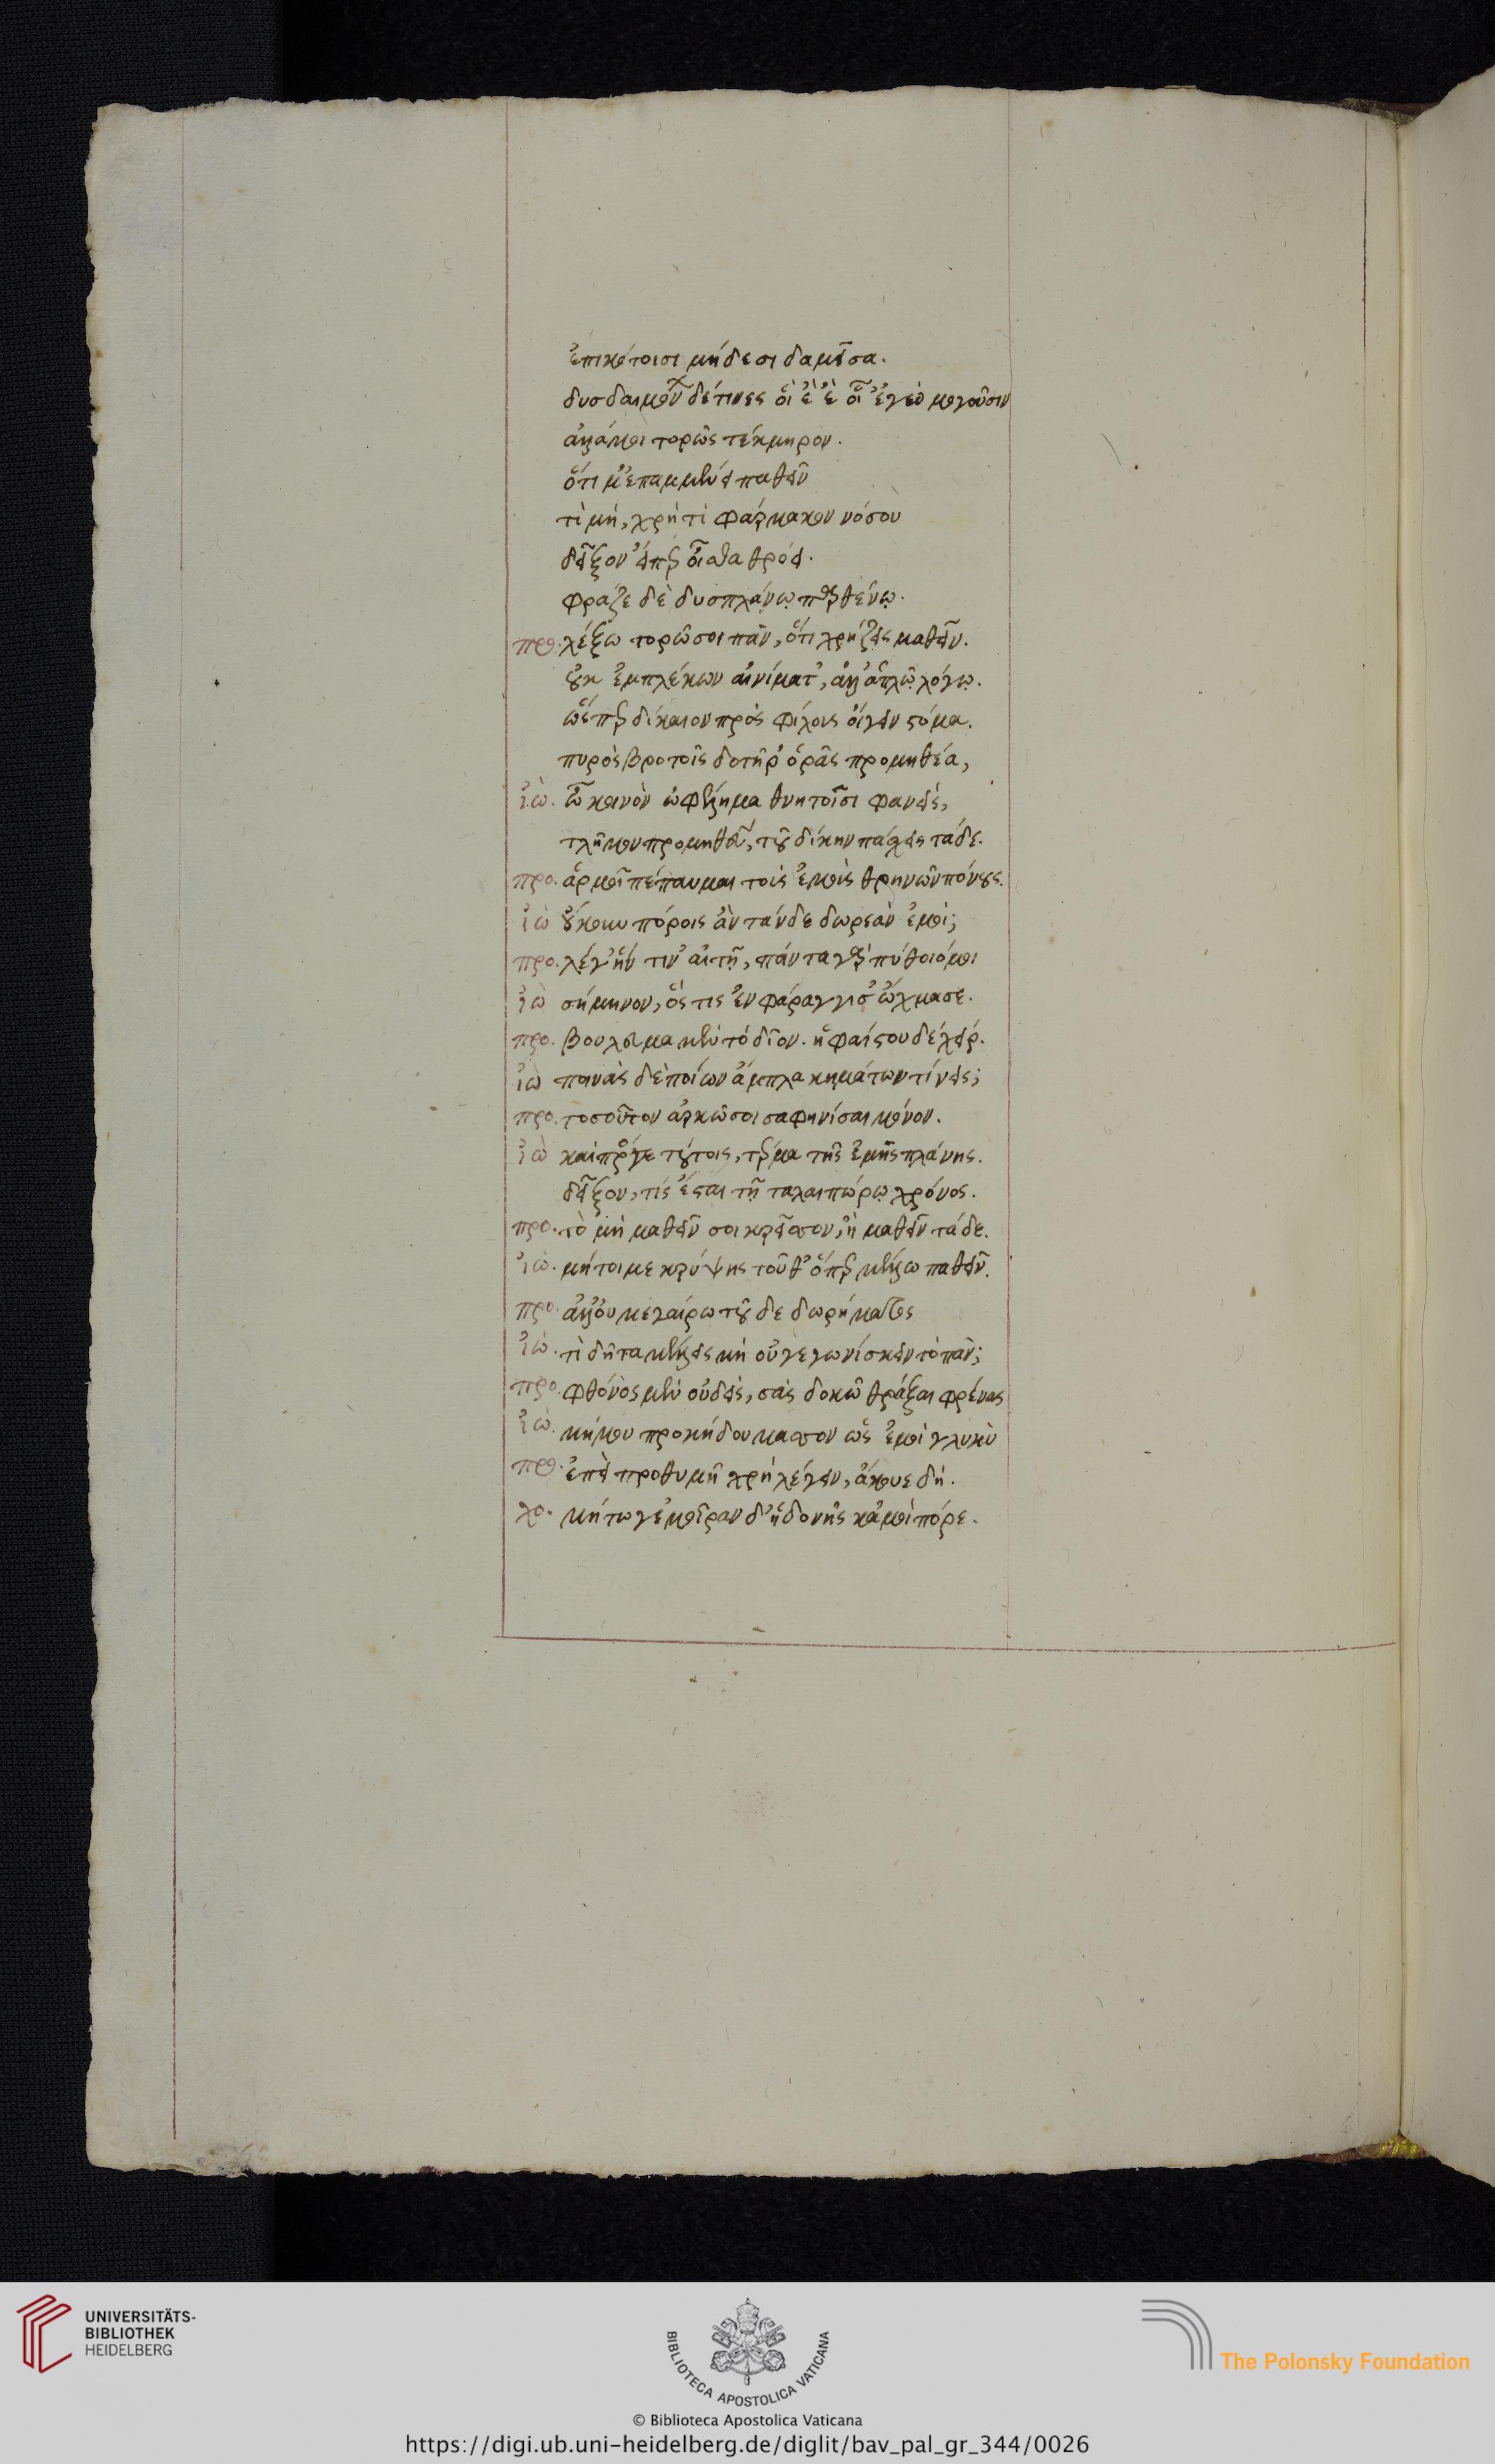 ἐπικότοισι μήδεσι δαμεῖσα.
δυσδαιμόνων δέ τινες οἳ ἒ ἒ οἷ ἐγὼ μογοῦσιν
ἀλλά μοι τορῶς τέκμηρον.
ὅτι μ' ἐπαμμένει παθεῖν
τί μή, χρή τί φάρμακον νόσου
δεῖξον εἴπερ οἶσθα θρόει.
φράζε δὲ δυσπλάνῳ παρθένῳ.
προ. λέξω τορῶς σοι πᾶν, ὅτι χρήζεις μαθεῖν.
οὐκ ἐμπλέκων αἰνίματ', ἀλλ' ἁπλῷ λόγῳ.
ὥσπερ δίκαιον πρὸς φίλους οἴγειν στόμα.
πυρὸς βροτοῖς δοτῆρ' ὁρᾶς προμηθέα,
ἰὼ. ὦ κοινὸν ὠφέλημα θνητοῖσι φανείς,
τλῆμον προμηθεῦ, τοῦ δίκην πάσχεις τάδε.
προ. ἁρμοῖ πέπαυμαι τοὺς ἐμοὺς θρηνῶν πόνους.
ἰὼ οὔκουν πόροις ἂν τάνδε δωρεὰν ἐμοί;
προ. λέγ' ἥν τιν' αἰτῇ, πάντα γὰρ πύθοιό μοι
ἰὼ σήμηνον, ὅς τις ἐν φάραγγι σ' ὤχμασε.
προ. βούλευμα μὲν τὸ δῖον. ἡφαίστου δὲ χείρ.
ἰὼ ποινὰς δὲ ποίων ἀμπλακημάτων τίνεις;
προ. τοσοῦτον ἀρκῶ σοι σαφηνίσαι μόνον.
ἰὼ καὶ πρός γε τούτοις, τέρμα τῆς ἐμῆς πλάνης.
δεῖξον, τίς ἔσται τῇ ταλαιπώρῳ χρόνος.
προ. τὸ μὴ μαθεῖν σοι κρεῖσσον, ἢ μαθεῖν τάδε.
ἰὼ. μήτοι με κρύψῃς τοῦθ' ὅπερ μέλλω παθεῖν.
προ. ἀλλ' οὐ μεγαίρω τοῦδε δωρήματος
ἰὼ. τί δῆτα μέλλεις μὴ οὐ γεγωνίσκειν τὸ πᾶν;
προ. φθόνος μὲν οὐδείς, σὰς δοκῶ θράξαι φρένας
ἰὼ. μή μου προκήδου μᾶσσον ὡς ἐμοὶ γλυκὺ
προ. ἐπεὶ προθυμῇ χρὴ λέγειν, ἄκουε δή.
χο. μήπω γε μοῖραν δ' ἡδονῆς κἀμοὶ πόρε.
UNIVERSITÄTS-
BIBLIOTHEK
HEIDELBERG
BIBLIOTECA APOSTOLICA VATICANA
The Polonsky Foundation
© Biblioteca Apostolica Vaticana
https://digi.ub.uni-heidelberg.de/diglit/bav_pal_gr_344/0026